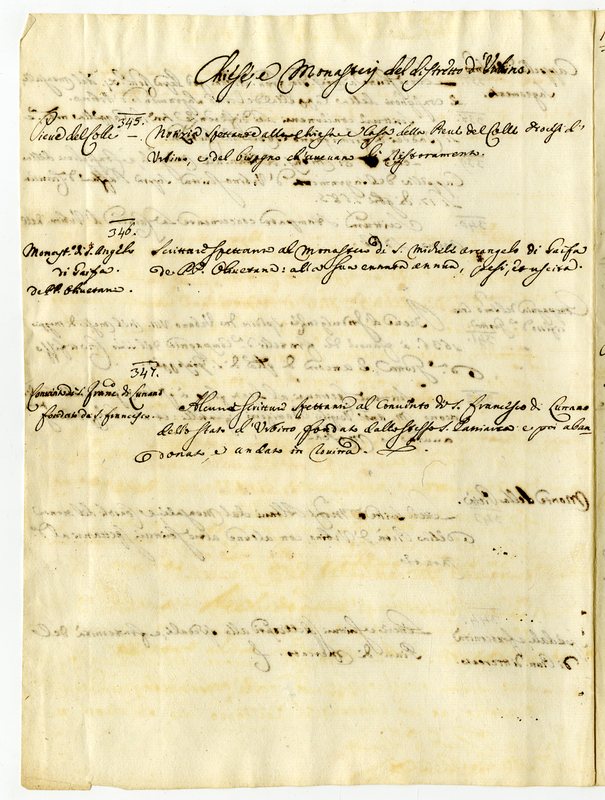 Chiese, e Monasterj del distretto d'Urbino
345.
Pieve del Colle — Notizie spettante alla Chiesa, e Casa della Pieve del Colle diocesi d'
Urbino, e del bisogno ch'avevano di ristoramento.
346.
Monast.o di S. Angelo
di Gaifa
de PP. Olivetani.
Scritture spettanti al Monastero di S. Michele Arcangelo di Gaifa
de PP. Olivetani: alla sua entrata annua, pesi, et uscita.
347.
Convento di S. Franc.o di
fondato da S. Francesco.
Alcune Scritture spettanti al Convento di S. Francesco di
dello Stato d'Urbino fondato dallo stesso S. Patriarca e poi aban-
donato, e andato in rovina.